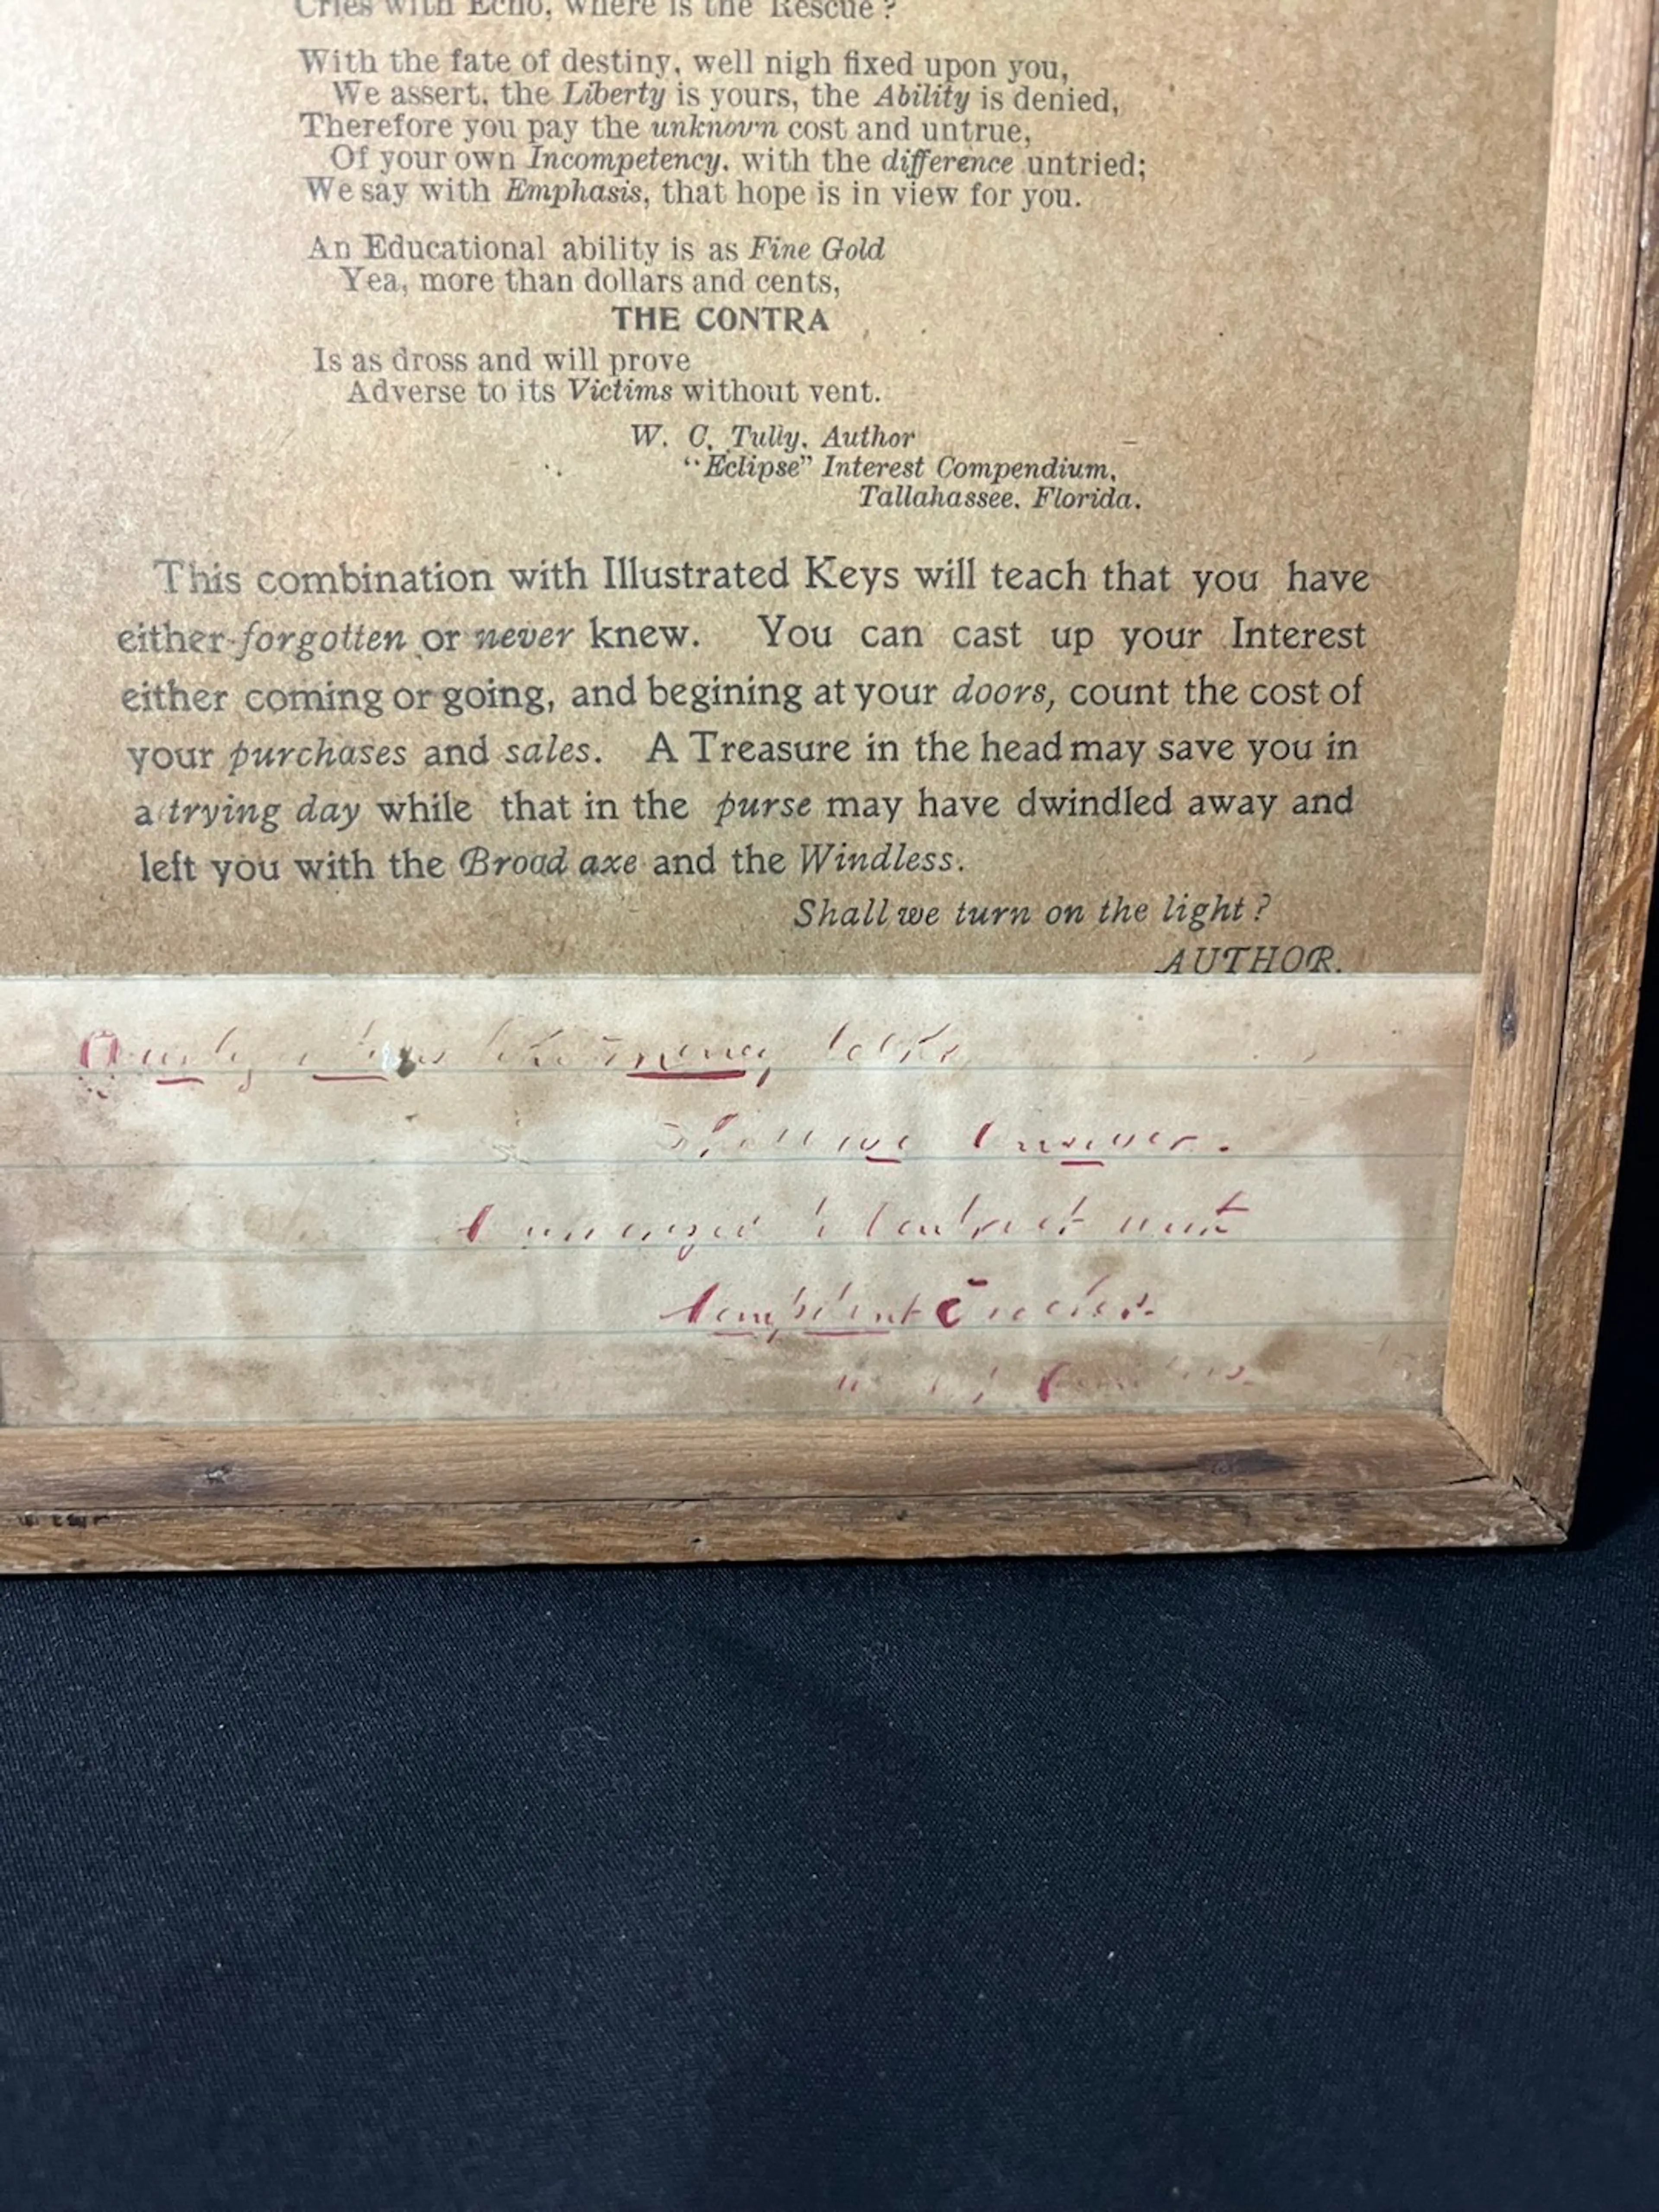 Cries with Echo, where is the Rescue?
With the fate of destiny, well nigh fixed upon you,
We assert, the Liberty is yours, the Ability is denied,
Therefore you pay the unknovn cost and untrue,
Of your own Incompetency, with the difference untried;
We say with Emphasis, that hope is in view for you.
An Educational ability is as Fine Gold
Yea, more than dollars and cents,
THE CONTRA
Is as dross and will prove
Adverse to its Victims without vent.
W. C. Tully, Author
"Eclipse" Interest Compendium,
Tallahassee, Florida.
This combination with Illustrated Keys will teach that you have
either forgotten or never knew. You can cast up your Interest
either coming or going, and begining at your doors, count the cost of
your purchases and sales. A Treasure in the head may save you in
a trying day while that in the purse may have dwindled away and
left you with the Broad axe and the Windless.
Shall we turn on the light?
AUTHOR.
money talks
Shall we answer.
contract with
Competent